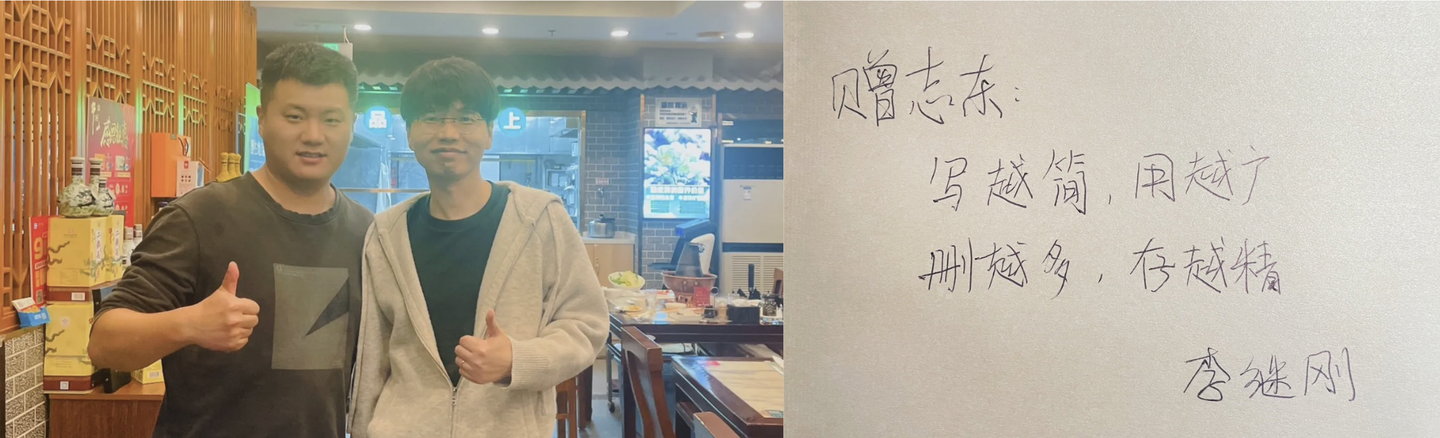 品
上
9
赠志东：
写越简，用越广
删越多，存越精
李继刚